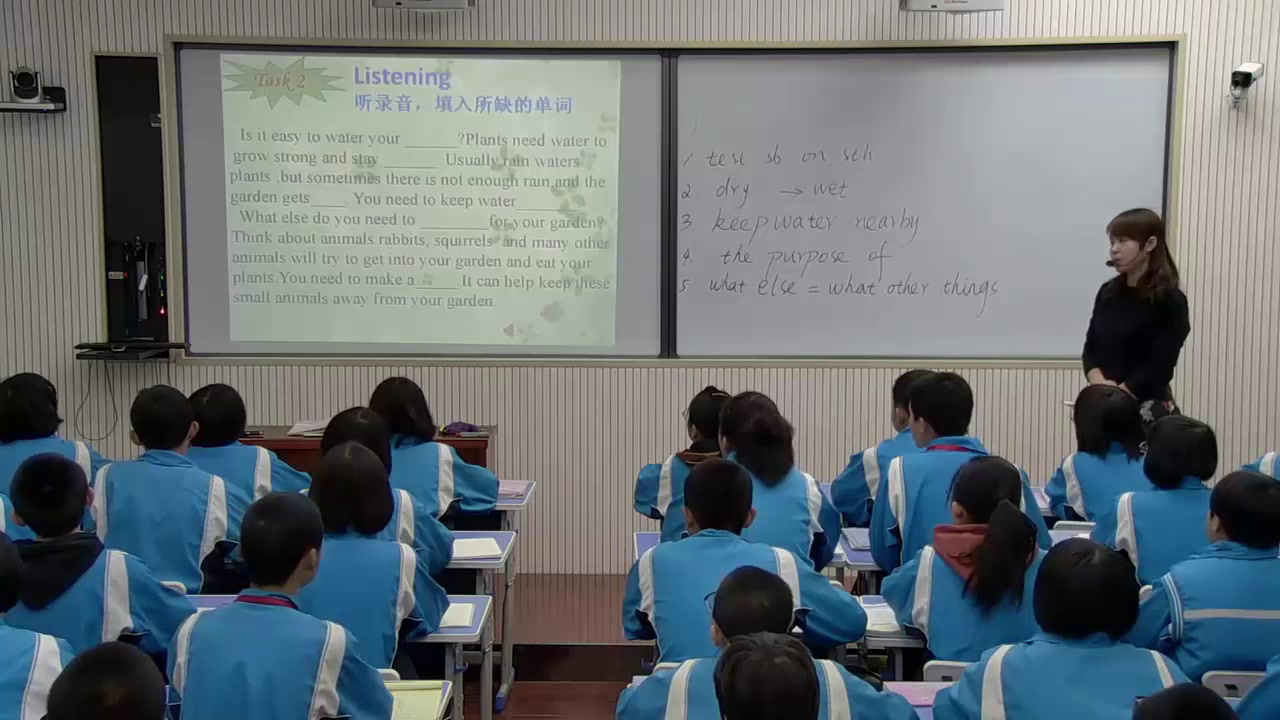 Task 2
Listening
听录音，填入所缺的单词
Is it easy to water your ______ ?Plants need water to
grow strong and stay ______ Usually rain waters
plants ,but sometimes there is not enough rain,and the
garden gets____. You need to keep water ______
What else do you need to ________ for your garden?
Think about animals.rabbits, squirrels and many other
animals will try to get into your garden and eat your
plants.You need to make a _____ It can help keep these
small animals away from your garden.
1. test sb on sth
2. dry → wet
3. keep water nearby
4. the purpose of
5. what else = what other things